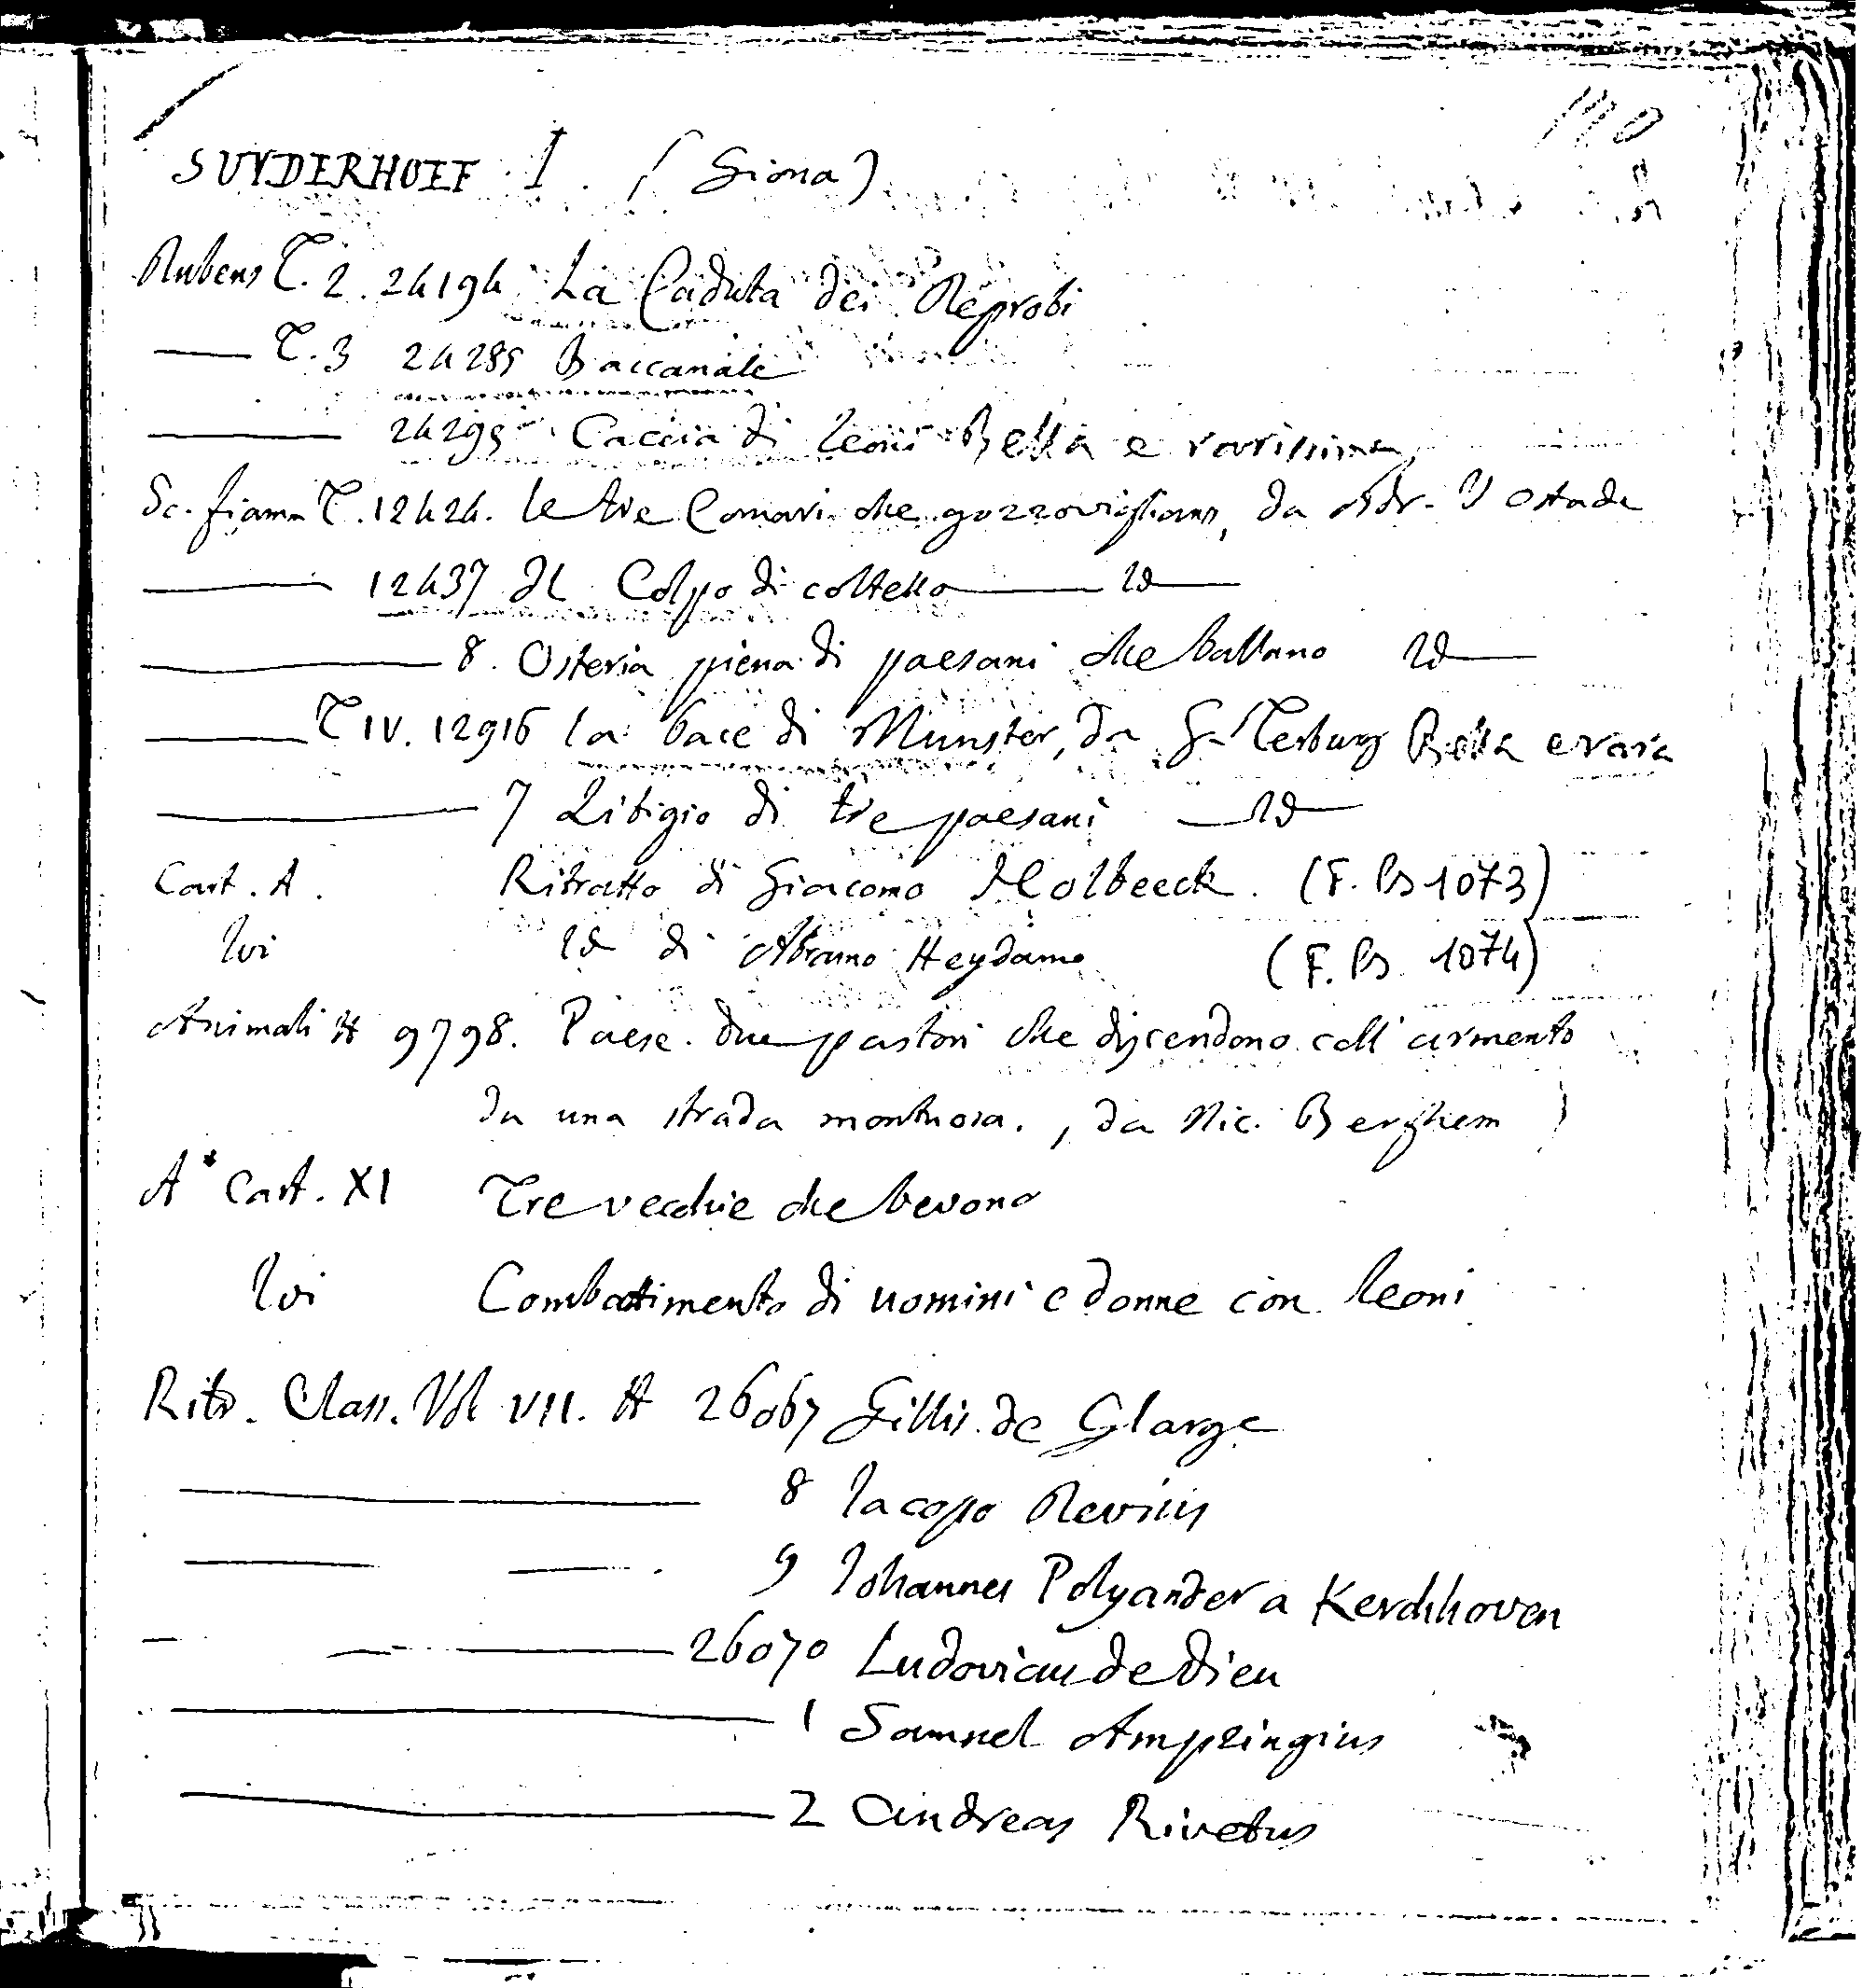 110
SUYDERHOEF I. (Giona)
Rubens T. 2. 24194 La Caduta dei Reprobi
—— T. 3 24285 Baccanale
—— 24295 Caccia di leoni Bella e rarissima
Sc. fiam. T. 12424. le tre Comari che gozzovigliano, da Adr. V Ostade
—— 12437 Il Colpo di coltello —— Id ——
—— 8. Osteria piena di paesani che ballano Id ——
—— T IV. 12916 la Pace di Munster, da G. Terburg Bella e rara
—— 7 Litigio di tre paesani — Id —
Cart. A. Ritratto di Giacomo Holbeeck. (F. B 1073)
Ivi Id di Abramo Heydano (F. B 1074)
Animali H 9798. Paese. due pastori che discendono coll' armento
da una strada montuosa., da Nic. Berghem
A* Cart. XI Tre vecchie che bevono
Ivi Combattimento di uomini e donne con leoni
Ritr. Class. Vol VII. H 26067 Gillis de Glarge
—— 8 Iacopo Revius
—— 9 Iohannes Polyander a Kerchhoven
—— 26070 Ludovicus de Dieu
—— 1 Samuel Ampzingius
—— 2 Andreas Rivetus